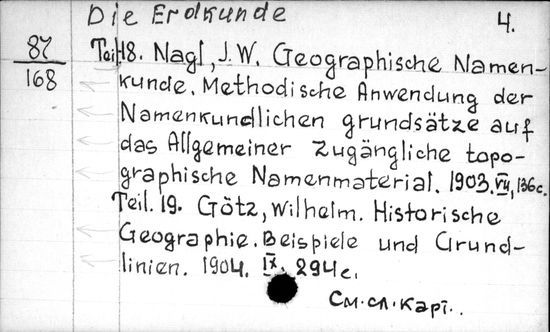 Die Erdkunde 4.
87
168
Teil 18. Nagl, J.W. Geographische Namen-
kunde. Methodische Anwendung der
Namenkundlichen grundsätze auf
das Allgemeiner zugängliche topo-
graphische Namenmaterial. 1903. VII, 136c.
Teil. 19. Götz, Wilhelm. Historische
Geographie. Beispiele und Grund-
linien. 1904. IX. 294c.
См. сл. карт..